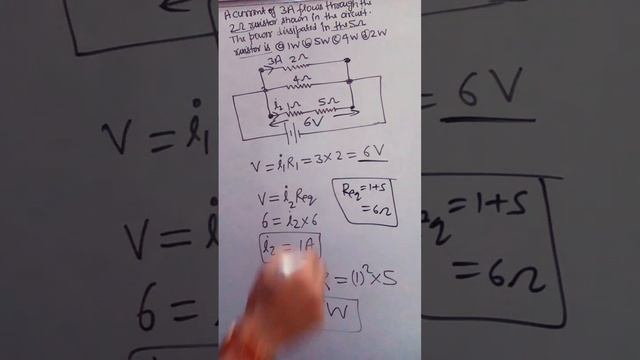 A current of 3A flows through the
2Ω resistor shown in the circuit.
The power dissipated in the 5Ω
resistor is ⓐ 1W ⓑ 5W ⓒ 4W ⓓ 2W
3A 2Ω
4Ω
i₂ 1Ω 5Ω
6V
V = i₁R₁ = 3×2 = 6V
V = i₂Req
Req = 1+5
= 6Ω
6 = i₂×6
i₂ = 1A
R = (1)²×5
W
V = i
6 =
6V
q = 1+5
= 6Ω